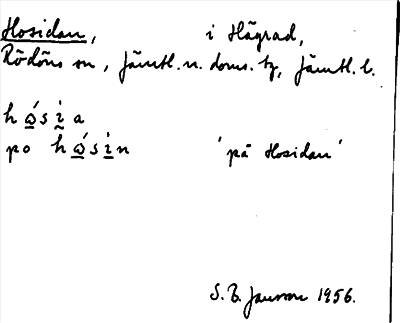 Hosidan, i Hägrad,
Rödöns sn, Jämtl. n. doms. tg, Jämtl. l.
h ώ s i a
po h ώ s i n 'på Hosidan'
S. B. Jansson 1956.